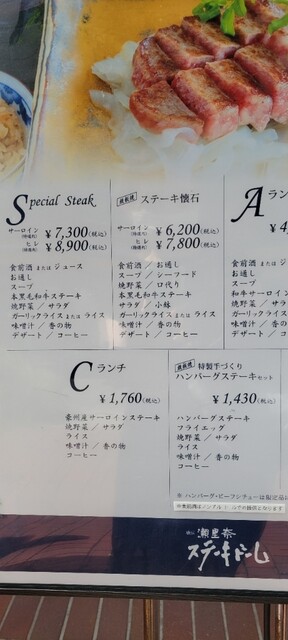 Special Steak
サーロイン ¥7,300(税込)
ヒレ ¥8,900(税込)
食前酒 または ジュース
お通し
スープ
本黒毛和牛ステーキ
焼野菜 / サラダ
ガーリックライス または ライス
味噌汁 / 香の物
デザート / コーヒー
ステーキ懐石
サーロイン ¥6,200(税込)
ヒレ ¥7,800(税込)
食前酒 / お通し
スープ / シーフード
焼野菜 / 口代り
本黒毛和牛ステーキ
サラダ / 小鉢
ガーリックライス または ライス
味噌汁 / 香の物
デザート / コーヒー
A ラン
¥4,
食前酒 または ジ
お通し
スープ
和牛サーロイン
焼野菜 / サラ
ガーリックライス
味噌汁 / 香の
デザート / コ
C ランチ
¥1,760(税込)
豪州産サーロインステーキ
焼野菜 / サラダ
ライス
味噌汁 / 香の物
コーヒー
特製手づくり
ハンバーグステーキセット
¥1,430(税込)
ハンバーグステーキ
フライエッグ
焼野菜 / サラダ
ライス
味噌汁 / 香の物
コーヒー
※ ハンバーグ・ビーフシチューは限定
※食前酒はノンアルコールでの提供となります
瀬里奈
ステーキドーム